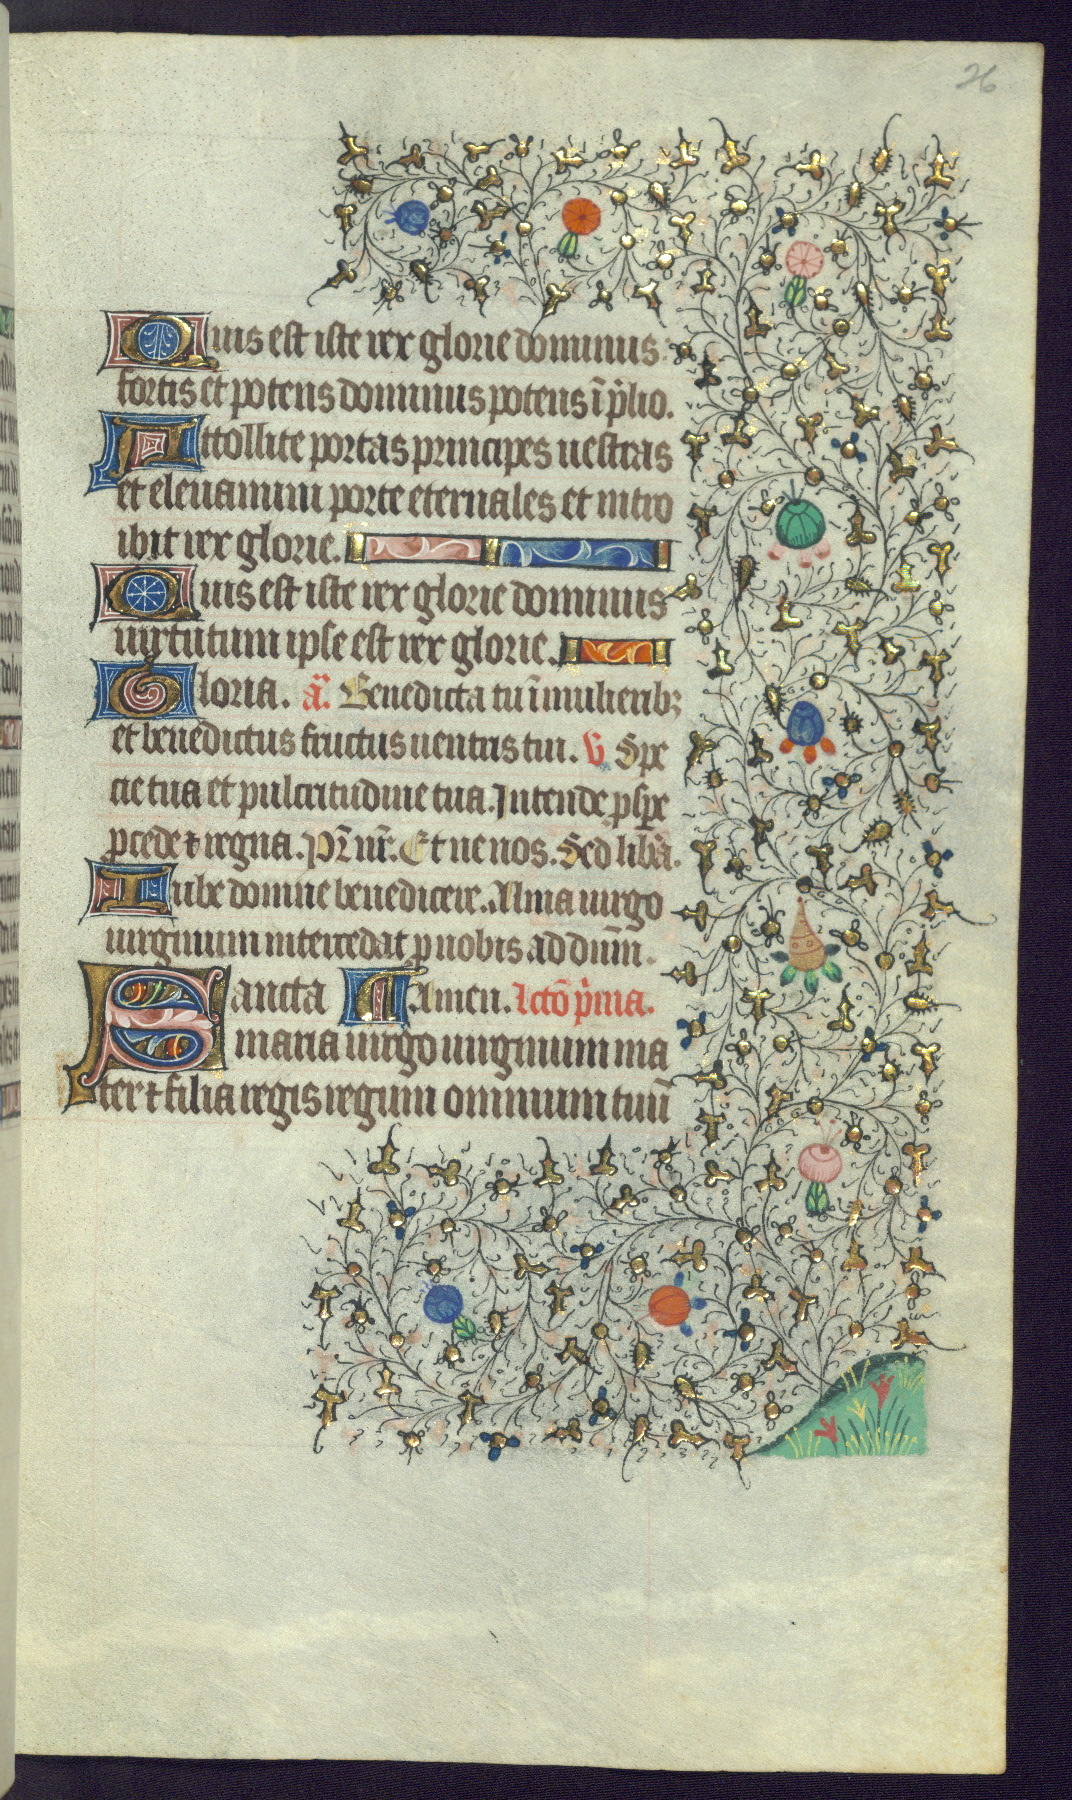 26
Quis est iste rex glorie dominus
fortis et potens dominus potens ī p̄lio.
Attollite portas principes uestras
et eleuamini porte eternales et intro
ibit rex glorie.
Quis est iste rex glorie dominus
uirtutum ipse est rex glorie.
Gloria. a. Benedicta tu ī mulierib;
et benedictus fructus uentris tui. V Spe
cie tua et pulcritudine tua. Intende pspe
pcede ⁊ regna. Pr̄ nr̄. Et ne nos. Sed liba.
Iube domne benedicere. Alma uirgo
uirginum intercedat p nobis ad dnm̄.
Sancta Amen. Lctō p̄ma.
maria uirgo uirginum ma
ter ⁊ filia regis regum omnium tuū